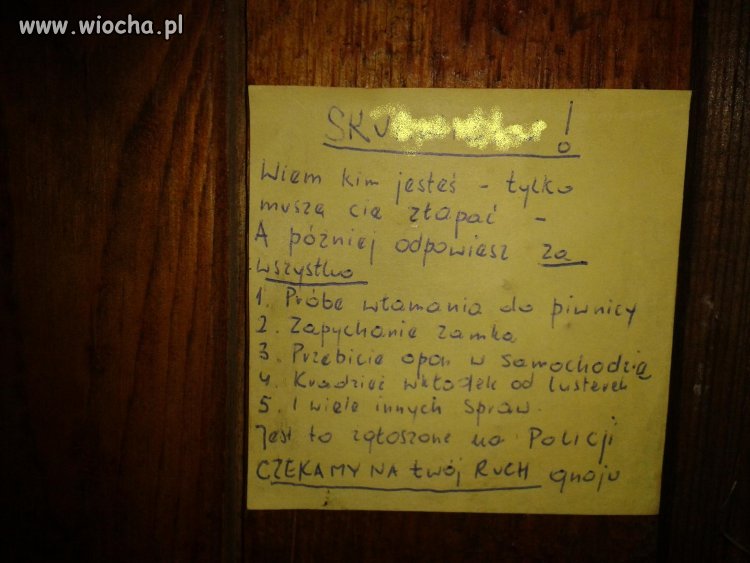 www.wiocha.pl
SKU !
Wiem kim jesteś - tylko
muszę cię złapać -
A później odpowiesz za
wszystko
1. Próbę włamania do piwnicy
2. Zapychanie zamka
3. Przebicie opon w samochodzie
4. Kradzież wkładek od lusterek
5. I wiele innych spraw.
Jest to zgłoszone na Policji
CZEKAMY NA twój RUCH gnoju